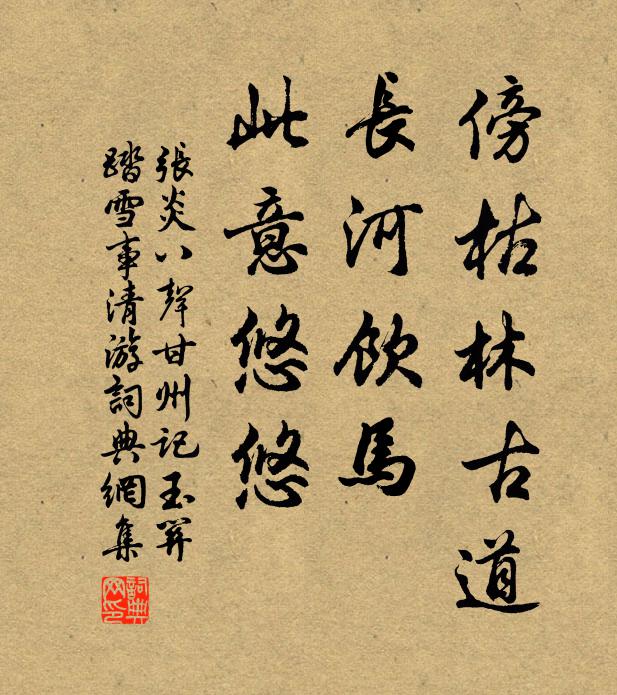 傍枯林古道
長河飲馬
此意悠悠
張炎八聲甘州記玉關
踏雪事清游詞典網集
詞典网印